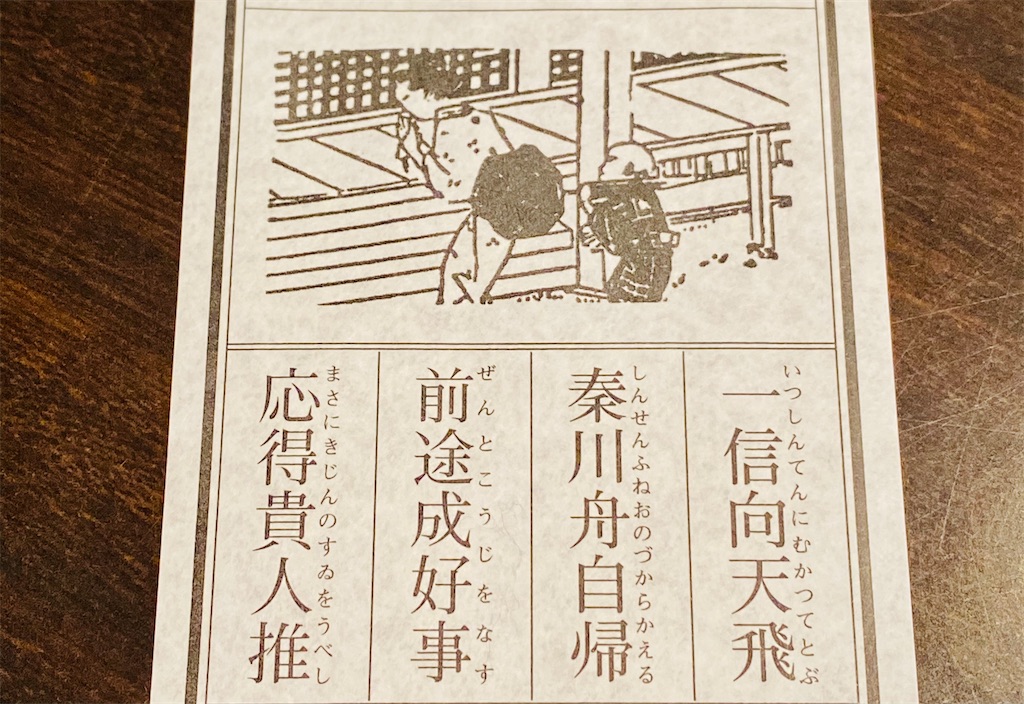 一信向天飛
いつしんてんにむかつてとぶ
秦川舟自帰
しんせんふねおのづからかえる
前途成好事
ぜんとこうじをなす
応得貴人推
まさにきじんのすゐをうべし